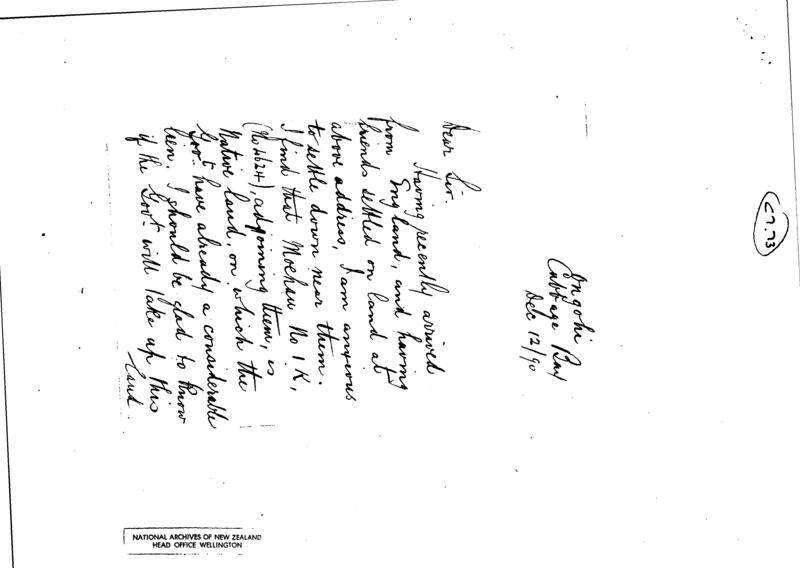 C7.73
Ongohi
Cabbage Bay
Dec 12/90
Dear Sir.
Having recently arrived
from England, and having
friends settled on land at
above address, I am anxious
to settle down near them.
I find that Moehau No 1 K,
(No 4624), adjoining them, is
Native land, on which the
Govt. have already a considerable
lien. I should be glad to know
if the Govt. will take up this
land.
NATIONAL ARCHIVES OF NEW ZEALAND
HEAD OFFICE WELLINGTON